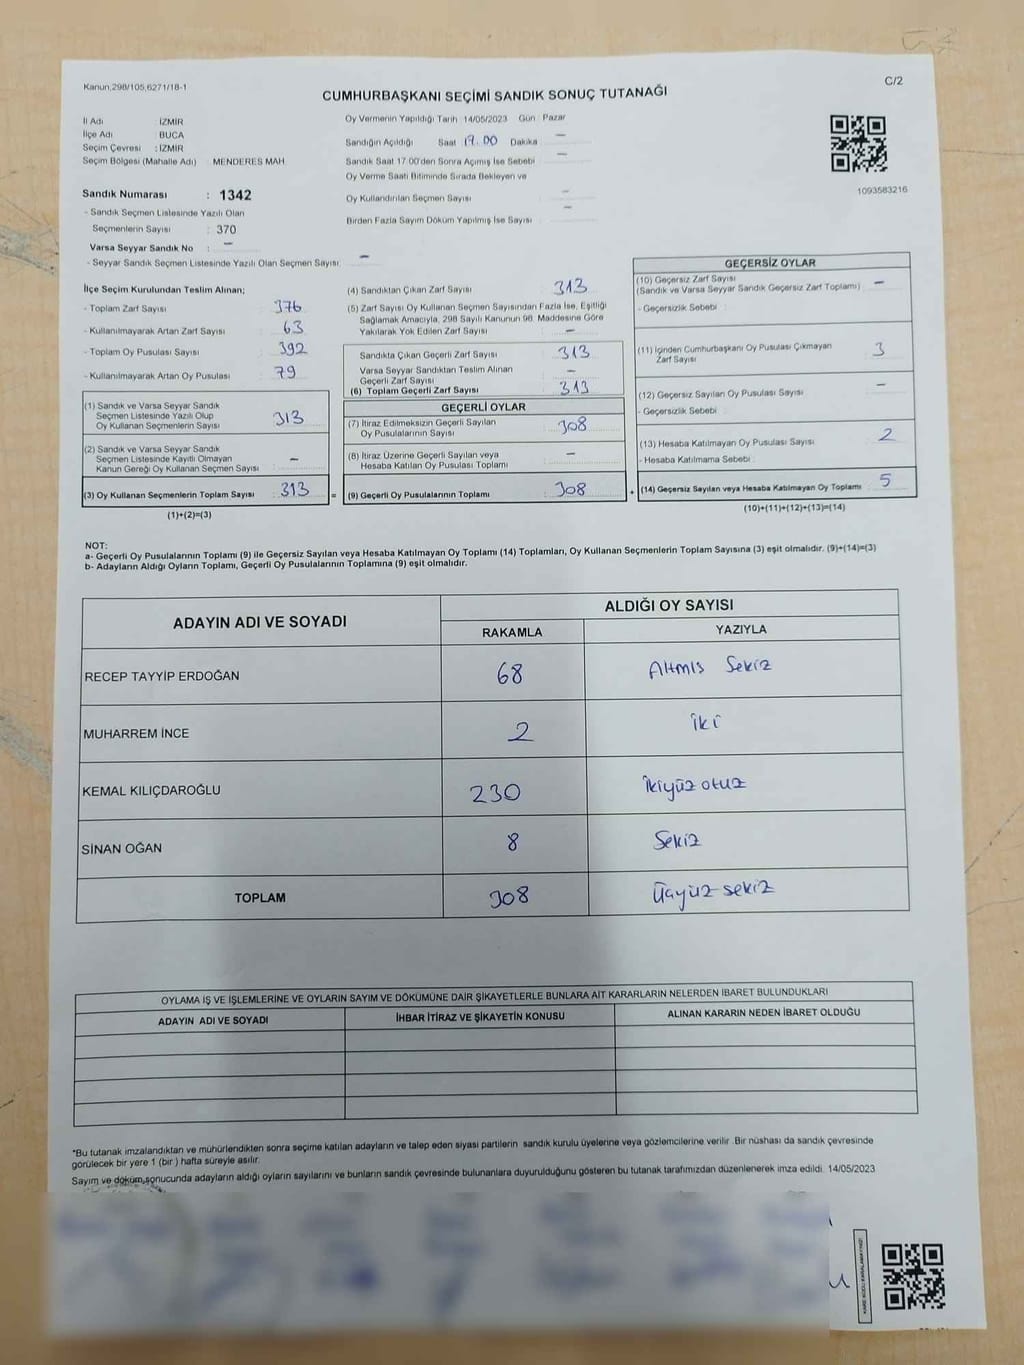 Kanun,298/105,6271/18-1
C/2
CUMHURBAŞKANI SEÇİMİ SANDIK SONUÇ TUTANAĞI
İl Adı : İZMİR
İlçe Adı : BUCA
Seçim Çevresi : İZMİR
Seçim Bölgesi (Mahalle Adı) MENDERES MAH
Sandık Numarası : 1342
- Sandık Seçmen Listesinde Yazılı Olan
Seçmenlerin Sayısı : 370
Varsa Seyyar Sandık No : —
- Seyyar Sandık Seçmen Listesinde Yazılı Olan Seçmen Sayısı: —
Oy Vermenin Yapıldığı Tarih 14/05/2023 Gün Pazar
Sandığın Açıldığı Saat 17.00 Dakika —
Sandık Saat 17.00'den Sonra Açımış İse Sebebi —
Oy Verme Saati Bitiminde Sırada Bekleyen ve
Oy Kullandırılan Seçmen Sayısı —
Birden Fazla Sayım Döküm Yapılmış İse Sayısı —
1093583216
İlçe Seçim Kurulundan Teslim Alınan;
- Toplam Zarf Sayısı : 376
- Kullanılmayarak Artan Zarf Sayısı : 63
- Toplam Oy Pusulası Sayısı : 392
- Kullanılmayarak Artan Oy Pusulası : 79
(1) Sandık ve Varsa Seyyar Sandık
Seçmen Listesinde Yazılı Olup
Oy Kullanan Seçmenlerin Sayısı : 313
(2) Sandık ve Varsa Seyyar Sandık
Seçmen Listesinde Kayıtlı Olmayan
Kanun Gereği Oy Kullanan Seçmen Sayısı : —
(3) Oy Kullanan Seçmenlerin Toplam Sayısı : 313 =
(1)+(2)=(3)
(4) Sandıktan Çıkan Zarf Sayısı : 313
(5) Zarf Sayısı Oy Kullanan Seçmen Sayısından Fazla İse, Eşitliği
Sağlamak Amacıyla, 298 Sayılı Kanunun 98. Maddesine Göre
Yakılarak Yok Edilen Zarf Sayısı : —
Sandıkta Çıkan Geçerli Zarf Sayısı : 313
Varsa Seyyar Sandıktan Teslim Alınan
Geçerli Zarf Sayısı : —
(6) Toplam Geçerli Zarf Sayısı : 313
GEÇERLİ OYLAR
(7) İtiraz Edilmeksizin Geçerli Sayılan
Oy Pusulalarının Sayısı : 308
(8) İtiraz Üzerine Geçerli Sayılan veya
Hesaba Katılan Oy Pusulası Toplamı : —
(9) Geçerli Oy Pusulalarının Toplamı : 308 +
GEÇERSİZ OYLAR
(10) Geçersiz Zarf Sayısı
(Sandık ve Varsa Seyyar Sandık Geçersiz Zarf Toplamı) : —
- Geçersizlik Sebebi :
(11) İçinden Cumhurbaşkanı Oy Pusulası Çıkmayan
Zarf Sayısı : 3
(12) Geçersiz Sayılan Oy Pusulası Sayısı : —
- Geçersizlik Sebebi :
(13) Hesaba Katılmayan Oy Pusulası Sayısı : 2
- Hesaba Katılmama Sebebi :
(14) Geçersiz Sayılan veya Hesaba Katılmayan Oy Toplamı : 5
(10)+(11)+(12)+(13)=(14)
NOT:
a- Geçerli Oy Pusulalarının Toplamı (9) ile Geçersiz Sayılan veya Hesaba Katılmayan Oy Toplamı (14) Toplamları, Oy Kullanan Seçmenlerin Toplam Sayısına (3) eşit olmalıdır. (9)+(14)=(3)
b- Adayların Aldığı Oyların Toplamı, Geçerli Oy Pusulalarının Toplamına (9) eşit olmalıdır.
ADAYIN ADI VE SOYADI
ALDIĞI OY SAYISI
RAKAMLA YAZIYLA
RECEP TAYYİP ERDOĞAN 68 Altmış Sekiz
MUHARREM İNCE 2 iki
KEMAL KILIÇDAROĞLU 230 ikiyüz otuz
SİNAN OĞAN 8 Sekiz
TOPLAM 308 Üçyüz sekiz
OYLAMA İŞ VE İŞLEMLERİNE VE OYLARIN SAYIM VE DÖKÜMÜNE DAİR ŞİKAYETLERLE BUNLARA AİT KARARLARIN NELERDEN İBARET BULUNDUKLARI
ADAYIN ADI VE SOYADI İHBAR İTİRAZ VE ŞİKAYETİN KONUSU ALINAN KARARIN NEDEN İBARET OLDUĞU
*Bu tutanak imzalandıktan ve mühürlendikten sonra seçime katılan adayların ve talep eden siyasi partilerin sandık kurulu üyelerine veya gözlemcilerine verilir .Bir nüshası da sandık çevresinde
görülecek bir yere 1 (bir ) hafta süreyle asılır.
Sayım ve döküm sonucunda adayların aldığı oyların sayılarını ve bunların sandık çevresinde bulunanlara duyurulduğunu gösteren bu tutanak tarafımızdan düzenlenerek imza edildi. 14/05/2023
KARE KODU KARALAMAYINIZ!